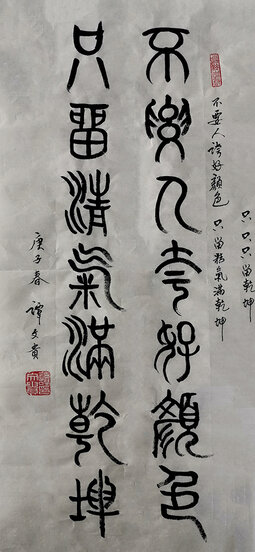 只只只留乾坤
不要人誇好顏色 只留清氣滿乾坤
不要人夸好顏色
只留清氣滿乾坤
庚子春 譚文貴